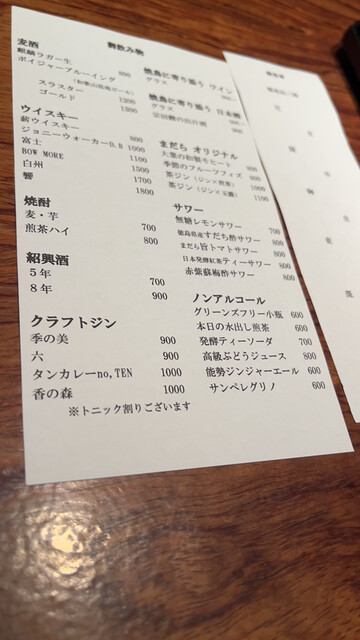 御飲み物
麦酒
麒麟ラガー生 800
ボイジャーブルーイング
(和歌山県地ビール)
スラスター 1200
ゴールド 1200
ウイスキー
薪ウイスキー 800
ジョニーウォーカーB.B 1000
富士 1100
BOW MORE 1500
白州 1700
響 1800
焼酎
麦・芋 700
煎茶ハイ 800
紹興酒
5年 700
8年 900
クラフトジン
季の美 900
六 900
タンカレーno,TEN 1000
香の森 1000
※トニック割りございます
焼鳥に寄り添う ワイン
グラス
焼鳥に寄り添う 日本酒
グラス
まだら オリジナル
大葉の和製モヒート
季節のフルーツフィズ
茶ジン(ジン×煎茶) 1000
茶ジン(ジン×玉露) 1100
サワー
無糖レモンサワー 700
徳島県産すだち酢サワー 800
まだら旨トマトサワー 800
日本発酵紅茶ティーサワー 800
赤紫蘇梅酢サワー 800
ノンアルコール
グリーンズフリー小瓶 600
本日の水出し煎茶 600
発酵ティーソーダ 700
高級ぶどうジュース 800
能勢ジンジャーエール 600
サンペレグリノ 600